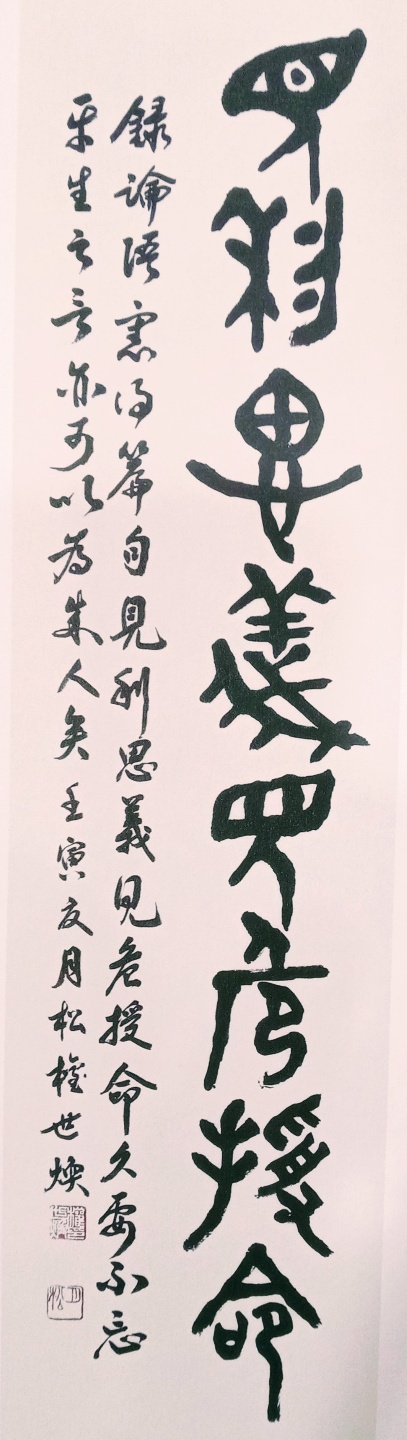 見利思義見危授命
錄論語憲问篇句見利思義見危授命久要不忘
平生之言亦可以為成人矣壬寅夏月松權世煥
權世煥印
月松